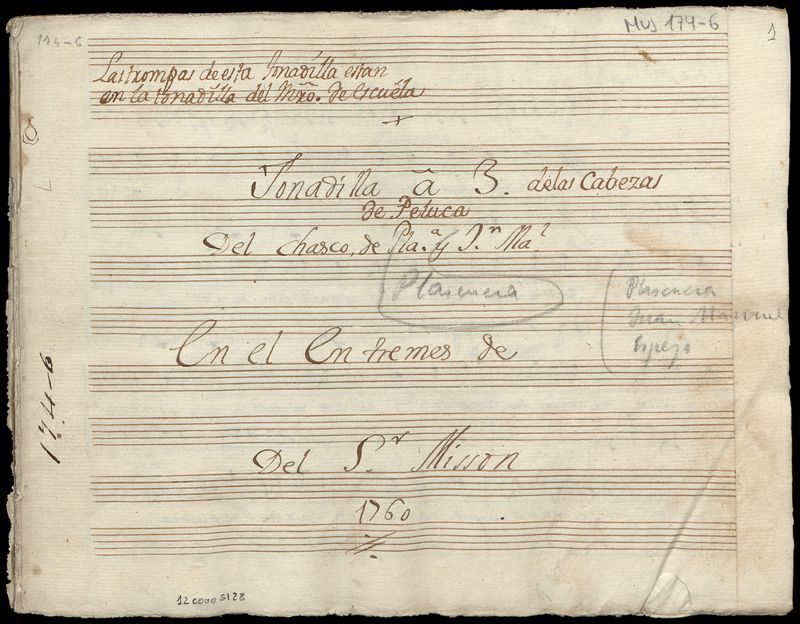 174-6
MUS 174-6
1
Las trompas de esta tonadilla estan
en la tonadilla del Mr̃o. de escuela
+
Tonadilla â 3. de las Cabezas
de Peluca
Del chasco, de Pla.ª y J.ⁿ Ma.ˡ
Plasencia
Plasencia
Juan Manuel
Espejo
En el Entremes de
174-6
Del S.ʳ Misson
1760
1200005128